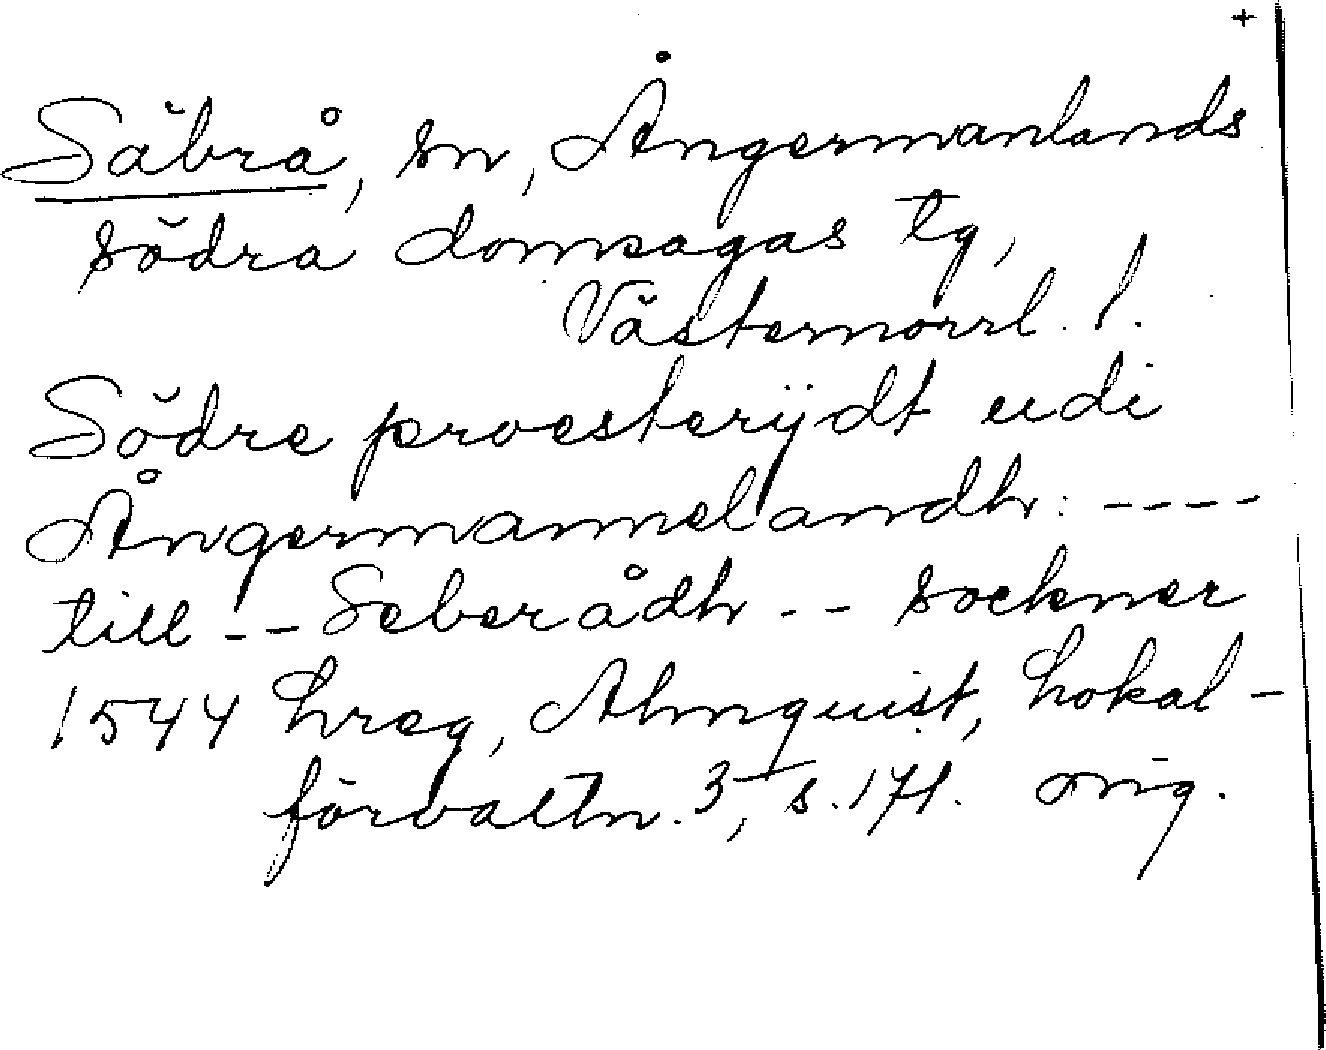 +
Säbrå, sn, Ångermanlands
södra domsagas tg,
Västernorrl. l.
Södre proesterijdt udi
Ångermannelandh: ----
till -- Seberådh -- sockner
1544 Lreg, Almquist, Lokal-
förvaltn. 3, s. 171. orig.